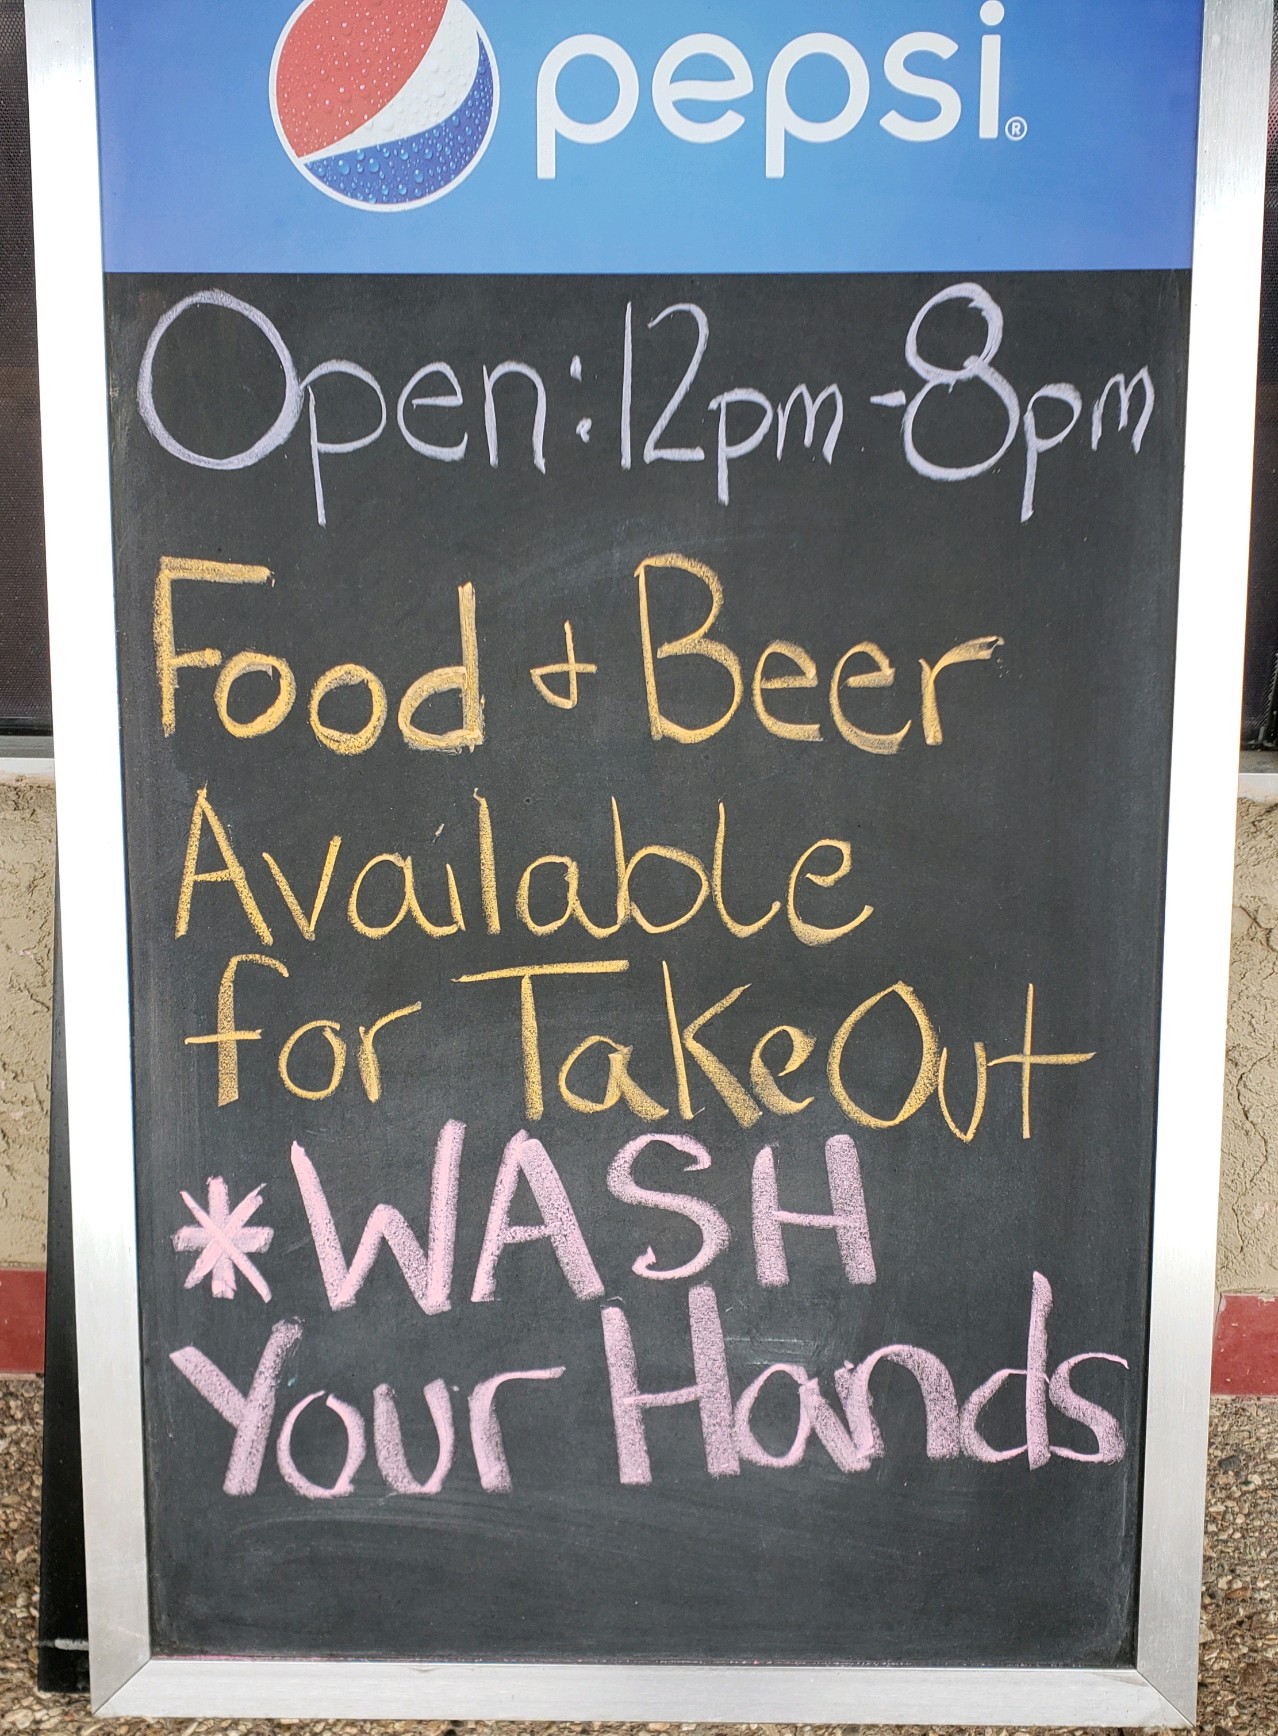 pepsi®
Open: 12pm - 8pm
Food + Beer
Available
for TakeOut
*WASH
Your Hands